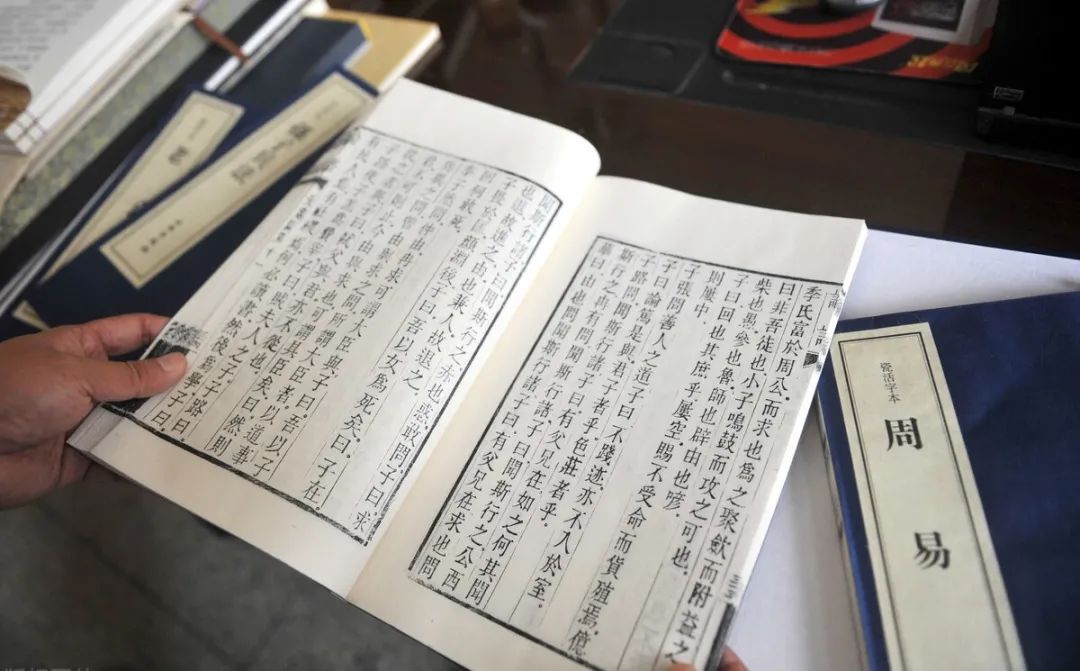 季氏富於周公，而求也爲之聚斂而附益之
曰非吾徒也小子鳴鼓而攻之可也。
柴也愚參也魯師也辟由也喭。
子曰回也其庶乎屢空賜不受命而貨殖焉億
則屢中。
子張問善人之道子曰不踐迹亦不入於室。
子曰論篤是與君子者乎色莊者乎。
子路問聞斯行諸子曰有父兄在如之何其聞
斯行之冉有問聞斯行諸子曰聞斯行之公西
華曰由也問聞斯行諸子曰有父兄在求也問
聞斯行諸子曰聞斯行之赤也惑敢問子曰求
也退故進之由也兼人故退之。
子畏於匡顏淵後子曰吾以女爲死矣曰子在。
回何敢死。
季子然問仲由冉求可謂大臣與子曰吾以子
爲異之問曾由與求之問所謂大臣者以道事
君不可則止今由與求也可謂具臣矣曰然則
從之者與子曰弑父與君亦不從也。
子路使子羔爲費宰子曰賊夫人之子子路曰。
有民人焉有社稷焉何必讀書然後爲學子曰。
瓷活字本
周易